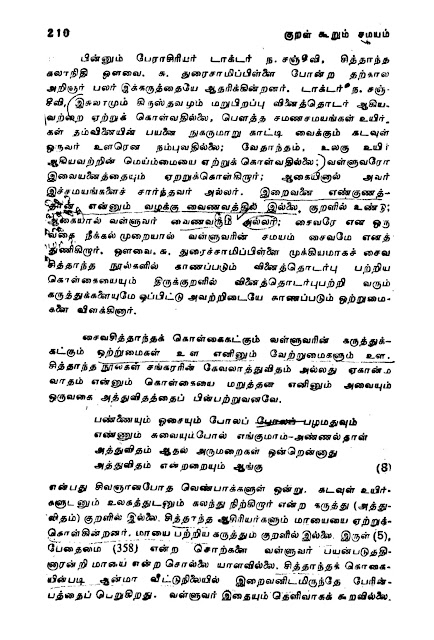 210 குறள் கூறும் சமயம்
பின்னும் பேராசிரியர் டாக்டர் ந. சஞ்சீவி, சித்தாந்த
கலாநிதி ஔவை. சு. துரைசாமிப்பிள்ளை போன்ற தற்கால
அறிஞர் பலர் இக்கருத்தையே ஆதரிக்கின்றனர். டாக்டர் ந. சஞ்-
சீவி, இசுலாமும் கிருஸ்தவமும் மறுபிறப்பு வினைத்தொடர் ஆகிய-
வற்றை ஏற்றுக் கொள்வதில்லை, பௌத்த சமணசமயங்கள் உயிர்-
கள் தம்வினையின் பயனை நுகருமாறு காட்டி வைக்கும் கடவுள்
ஒருவர் உளரென நம்புவதில்லை; வேதாந்தம், உலகு உயிர்
ஆகியவற்றின் மெய்ம்மையை ஏற்றுக் கொள்வதில்லை; வள்ளுவரோ
இவையனைத்தையும் ஏறறுக்கொள்கிறார்; ஆகையினால் அவர்
இச்சமயங்களைச் சார்ந்தவர் அல்லர். இறைவனை எண்குணத்-
தான் என்னும் வழக்கு வைணவத்தில் இல்லை, குறளில் உண்டு;
ஆகையால் வள்ளுவர் வைணவரும் அல்லர்; சைவரே என ஒரு
வகை நீக்கல் முறையால் வள்ளுவரின் சமயம் சைவமே எனத்
துணிகிறார். ஔவை. சு. துரைச்சாமிப்பிள்ளை முக்கியமாகச் சைவ
சித்தாந்த நூல்களில் காணப்படும் வினைத்தொடர்பு பற்றிய
கொள்கையையும் திருக்குறளில் வினைத்தொடர்புபற்றி வரும்
கருத்துக்களையுமே ஒப்பிட்டு அவற்றிடையே காணப்படும் ஒற்றுமை-
களை விளக்கினார்.
சைவசித்தாந்தக் கொள்கைகட்கும் வள்ளுவரின் கருத்துக்-
கட்கும் ஒற்றுமைகள் உள எனினும் வேற்றுமைகளும் உள.
சித்தாந்த நூல்கள் சங்கரரின் கேவலாத்துவிதம் அல்லது ஏகான்ம
வாதம் என்னும் கொள்கையை மறுத்தன எனினும் அவையும்
ஒருவகை அத்துவிதத்தைப் பின்பற்றுவனவே.
பண்ணையும் ஓசையும் போலப் போலப் பழமதுவும்
எண்ணும் சுவையும்போல் எங்குமாம்-அண்ணல்தாள்
அத்துவிதம் ஆதல் அருமறைகள் ஒன்றென்னாது
அத்துவிதம் என்றறையும் ஆங்கு (8)
என்பது சிவஞானபோத வெண்பாக்களுள் ஒன்று. கடவுள் உயிர்-
களுடனும் உலகத்துடனும் கலந்து நிற்கிறார் என்ற கருத்து (அத்து-
விதம்) குறளில் இல்லை. சித்தாந்த ஆசிரியர்களும் மாயையை ஏற்றுக்-
கொள்கின்றனர். மாயை பற்றிய கருத்தும் குறளில் இல்லை. இருள் (5),
பேதைமை (358) என்ற சொற்களை வள்ளுவர் பயன்படுத்தி-
னாரன்றி மாயை என்ற சொல்லை யாளவில்லை. சித்தாந்தக் கொகை-
யின்படி ஆன்மா வீட்டுநிலையில் இறைவனிடமிருந்தே பேரின்-
பத்தைப் பெறுகிறது. வள்ளுவர் இதையும் தெளிவாகக் கூறவில்லை.